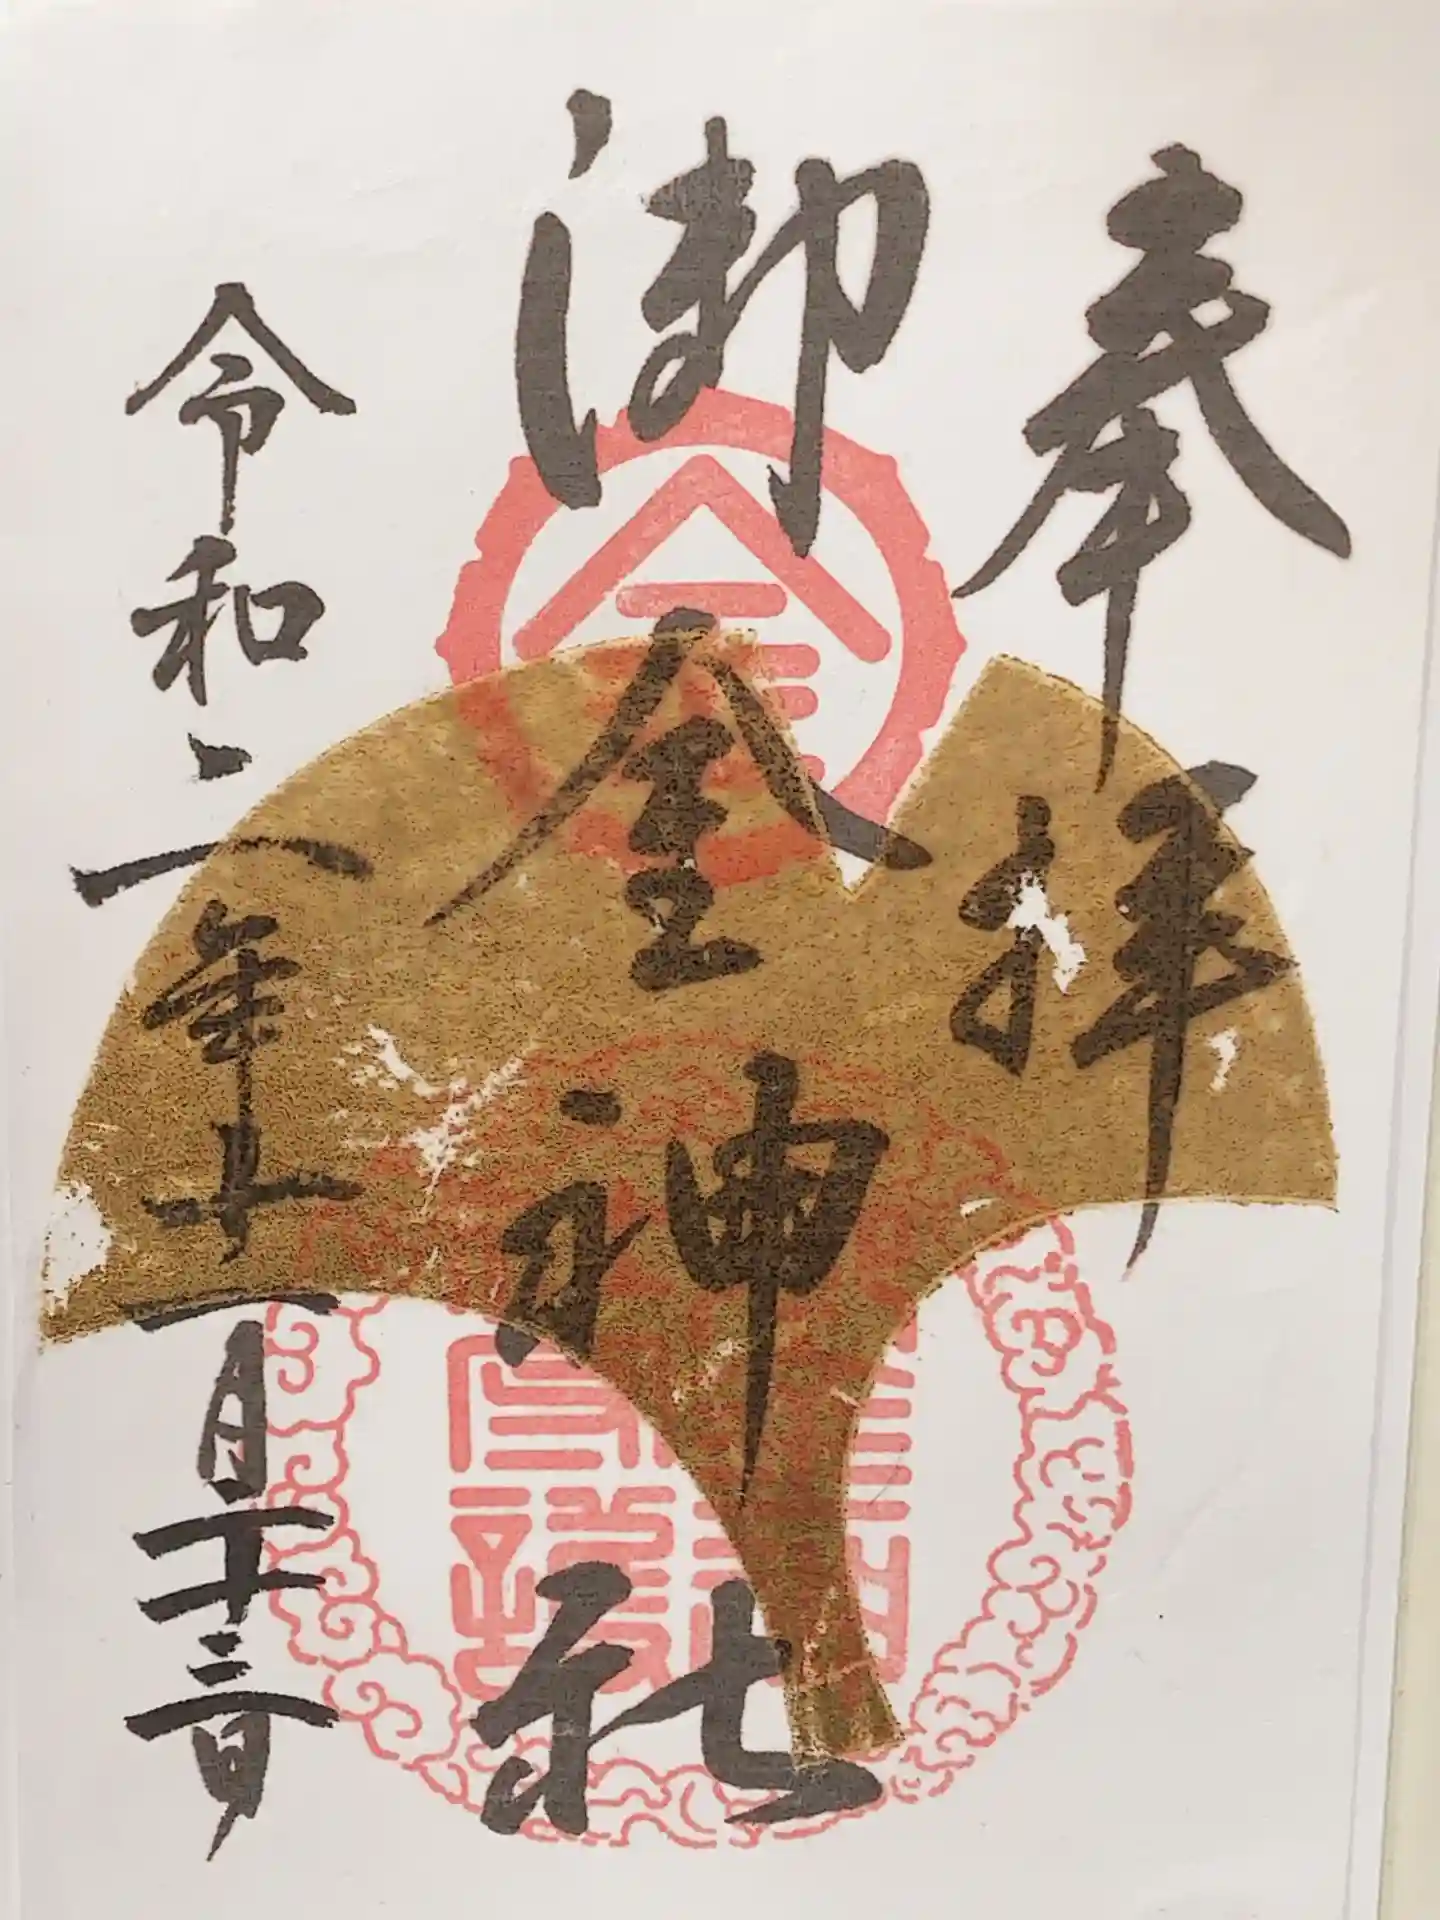 奉拝
御金神社
金
令和二年十一月二十三日